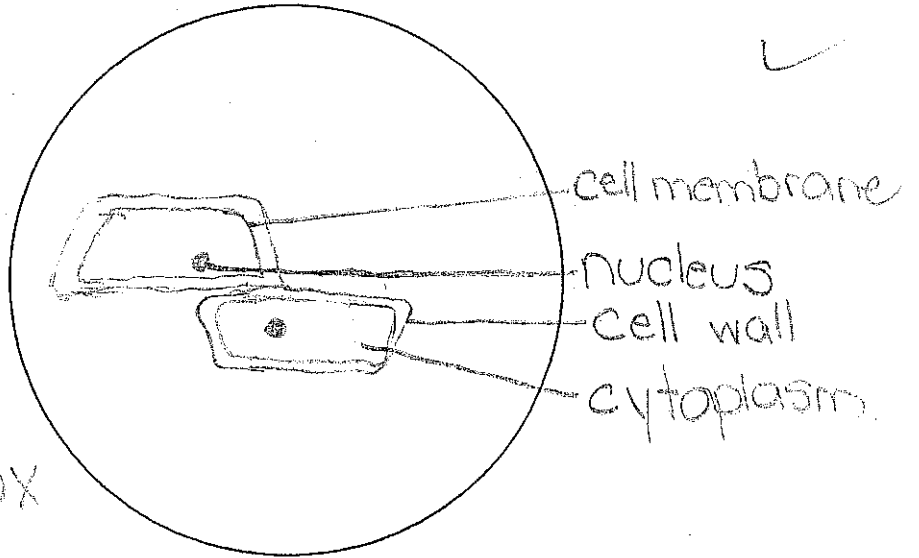 cell membrane
nucleus
cell wall
cytoplasm